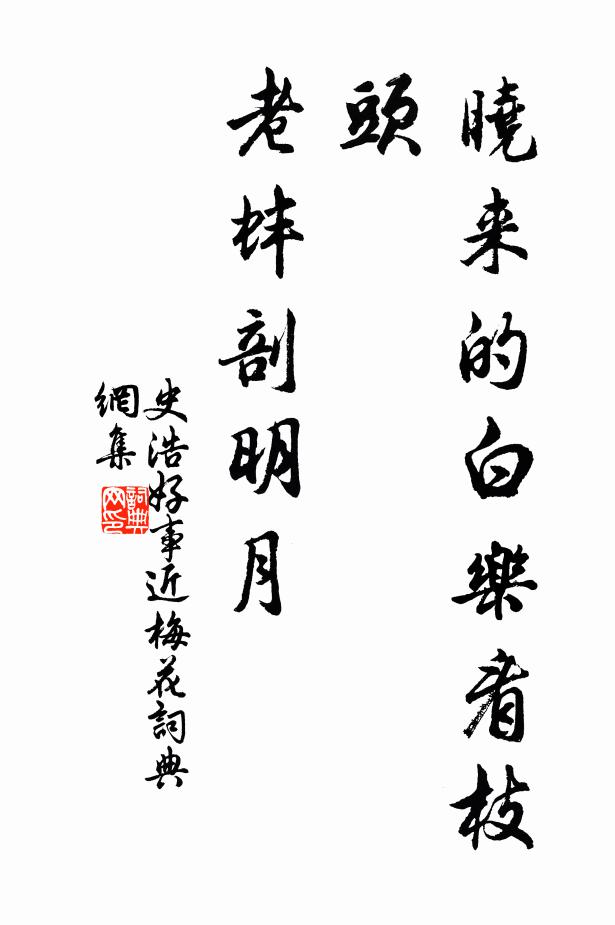 曉来的白樂看枝
頭
老蚌剖明月
史浩好事近梅花詞典
網集
詞典
网印